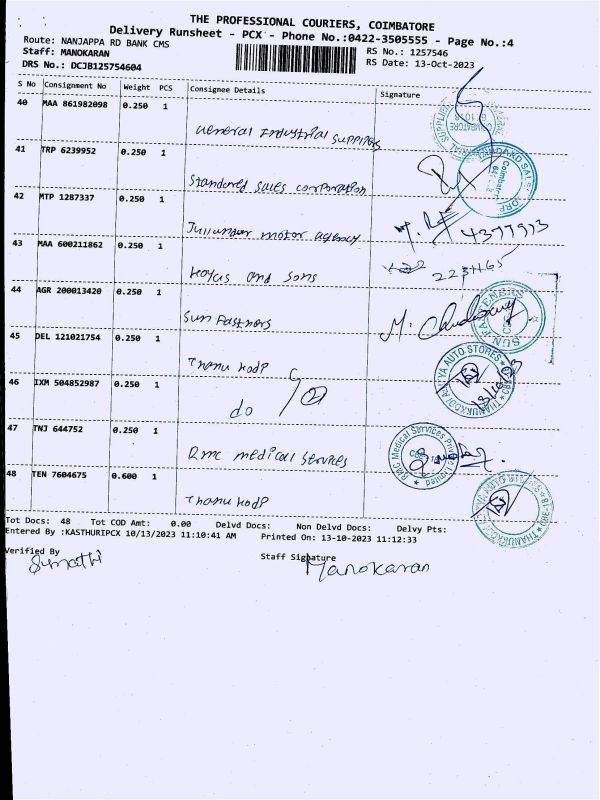 THE PROFESSIONAL COURIERS, COIMBATORE
Delivery Runsheet - PCX - Phone No.:0422-3505555 - Page No.:4
Route: NANJAPPA RD BANK CMS RS No.: 1257546
Staff: MANOKARAN RS Date: 13-Oct-2023
DRS No.: DCJB125754604
S No Consignment No Weight PCS Consignee Details Signature
40 MAA 861982098 0.250 1
General Industrial Suppliers
41 TRP 6239952 0.250 1
Standured Sales corporation
42 MTP 1287337 0.250 1
Jullunder motor agency 4377973
43 MAA 600211862 0.250 1
and sons
44 AGR 200013420 0.250 1
Sun Fastnors
SUN FASTENERS
45 DEL 121021754 0.250 1
Thanu kodp
AUTO STORES
46 IXM 504852987 0.250 1
do 2
13/10/23
47 TNJ 644752 0.250 1
Rmc medical Services
RMC Medical Services Private Limited
48 TEN 7604675 0.600 1
Thanu kodp
Tot Docs: 48 Tot COD Amt: 0.00 Delvd Docs: Non Delvd Docs: Delvy Pts:
Entered By :KASTHURIPCX 10/13/2023 11:10:41 AM Printed On: 13-10-2023 11:12:33
Verified By Staff Signature
Sumathi Manokaran